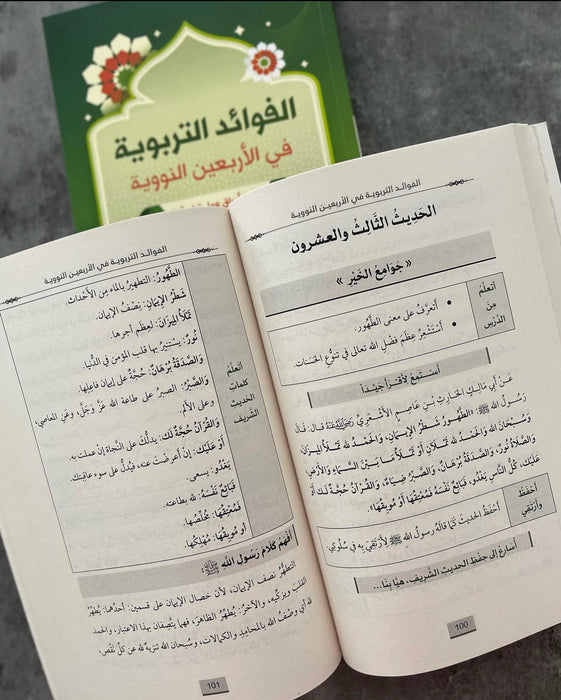 الفوائد التربوية
في الأربعين النووية
الفوائد التربوية في الأربعين النووية
الحَدِيثُ الثَّالِثُ والعشرون
« جَوَامِعُ الخَيْرِ »
أتعلَّمُ
مِنَ
الدَّرْسِ
• أَتعرَّفُ على معنى الطَّهُور.
• أَسْتَشْعِرُ عِظَمَ فضْلِ الله تعالى في تنوُّعِ الحَسَنات.
أَسْتَمِعُ لأَقْرَأَ جَيِّداً
عَنْ أَبي مَالِكٍ الحَارِثِ بْنِ عَاصِمٍ الأَشْعَرِيِّ رَضِيَ اللَّهُ عَنْهُ قالَ: قالَ
رَسُولُ اللهِ ﷺ: «الطَّهُورُ شَطْرُ الإِيمَانِ، وَالحَمْدُ لله تَمْلَأُ المِيزَانَ،
وَسُبْحَانَ الله وَالحَمْدُ لله تَمْلَآنِ أَوْ تَمْلَأُ مَا بَيْنَ السَّمَاءِ وَالأَرْضِ،
وَالصَّلَاةُ نُورٌ، وَالصَّدَقَةُ بُرْهَانٌ، وَالصَّبْرُ ضِيَاءٌ، وَالقُرْآنُ حُجَّةٌ لَكَ أَوْ
عَلَيْكَ، كُلُّ النَّاسِ يَغْدُو، فَبَائِعٌ نَفْسَهُ فَمُعْتِقُهَا أَوْ مُوبِقُهَا».
أحْفَظُ
وأرْتَقي
أحْفَظُ الحديثَ كَمَا قالَهُ رسولُ اللهِ ﷺ لِأَرْتَقِيَ بِهِ في سُلُوكِي
أُسَارِعُ إلى حِفْظِ الحديثِ الشَّريف، هيَّا بِنَا...
100
الفوائد التربوية في الأربعين النووية
أتعلَّمُ
كلمات
الحديث
الشَّريف
الطَّهُورُ: التطهيرُ بالماء مِنَ الأَحْداث.
شَطْرُ الإِيمَانِ: نِصْفُ الإيمان.
تَمْلَأُ المِيزَانَ: لِعِظَمِ أجرها.
نُورٌ: يستنيرُ بها قلب المؤمن في الدُّنيا.
وَالصَّدَقَةُ بُرْهَانٌ: حُجَّةٌ على إيمان فاعِلِها.
وَالصَّبْرُ: الصبرُ على طاعة الله عَزَّ وَجَلَّ، وعَنِ المعاصي،
وعلى الألم.
وَالقُرْآنُ حُجَّةٌ لَكَ: يدلُّكَ على النَّجاة إنْ عملت به.
أَوْ عَلَيْكَ: إنْ أعرضْتَ عنه، فيدُلُّ على سوءِ عاقبتك.
يَغْدُو: يسعى.
فَبَائِعٌ نَفْسَهُ: لله بطاعته.
فَمُعْتِقُهَا: مُخلِّصُها.
أو مُوبِقُهَا: مُهلِكُها.
أفْهَمُ كَلَامَ رَسُولِ اللهِ ﷺ:
التطهُّرُ نصفُ الإيمان، لأن خصال الإيمان على قسمين: أحدهما: يُطهِّرُ
القلبَ ويزكِّيه، والآخرُ: يُطهِّرُ الظاهرَ، فهما يتَّصِفان بهذا الاعتبار، والحمد
لله أي وصْفُ الله بالمحامِدِ والكمالات، وسُبحان الله تنزيهٌ لله عن كلِّ نقص،
101